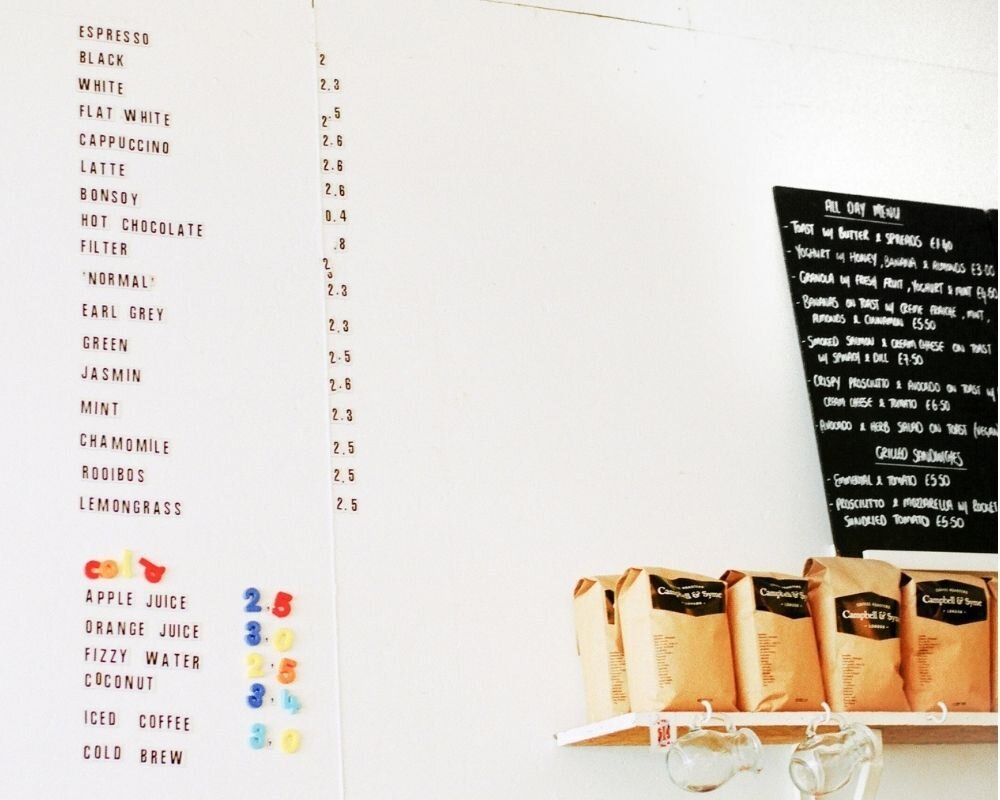 ESPRESSO
BLACK 2
WHITE 2.3
FLAT WHITE 2.5
CAPPUCCINO 2.6
LATTE 2.6
BONSOY 2.6
HOT CHOCOLATE 0.4
FILTER .8
2
'NORMAL' 2.3
EARL GREY 2.3
GREEN 2.5
JASMIN 2.6
MINT 2.3
CHAMOMILE 2.5
ROOIBOS 2.5
LEMONGRASS 2.5
cold
APPLE JUICE 2.5
ORANGE JUICE 3.0
FIZZY WATER 2.5
COCONUT 3.4
ICED COFFEE 3.0
COLD BREW
ALL DAY MENU
- TOAST W/ BUTTER & SPREADS
- YOGHURT W/ HONEY, BANANA & ALMONDS £3.00
- GRANOLA W/ FRESH FRUIT, YOGHURT & MINT
- BANANAS ON TOAST W/ CREME FRAICHE, MINT,
ALMONDS & CINNAMON £5.50
- SMOKED SALMON & CREAM CHEESE ON TOAST
W/ SPINACH & DILL £7.50
- CRISPY PROSCIUTTO & AVOCADO ON TOAST W/
CREAM CHEESE & TOMATO £6.50
- AVOCADO & HERB SALAD ON TOAST (VEGAN
GRILLED SANDWICHES
- EMMENTAL & TOMATO £5.50
- PROSCIUTTO & MOZZARELLA W/ ROCKET
SUNDRIED TOMATO £5.50
Campbell & Syme
LONDON
Campbell & Sy
LONDON
COFFEE ROASTERS
Campbell & Sy
LONDON
COFFEE ROASTERS
Campbell & Syme
LONDON